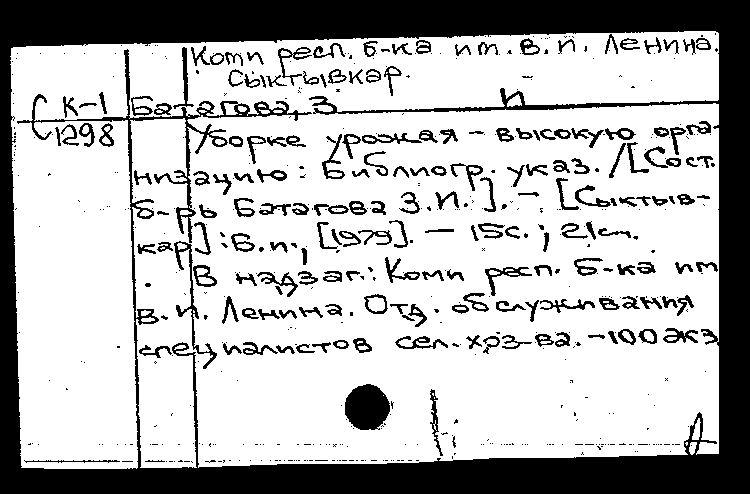 Коми респ. б-ка им. В. И. Ленина.
Сыктывкар.
С К-1
1298
Батагова, З И
Уборке урожая - высокую орга-
низацию: Библиогр. указ. /[Сост.
б-рь Батагова З.И.]. - [Сыктыв-
кар]: Б.и., [1979]. - 15с.; 21см.
В надзаг.: Коми респ. б-ка им
В.И. Ленина. Отд. обслуживания
специалистов сел. хоз-ва. - 100 экз